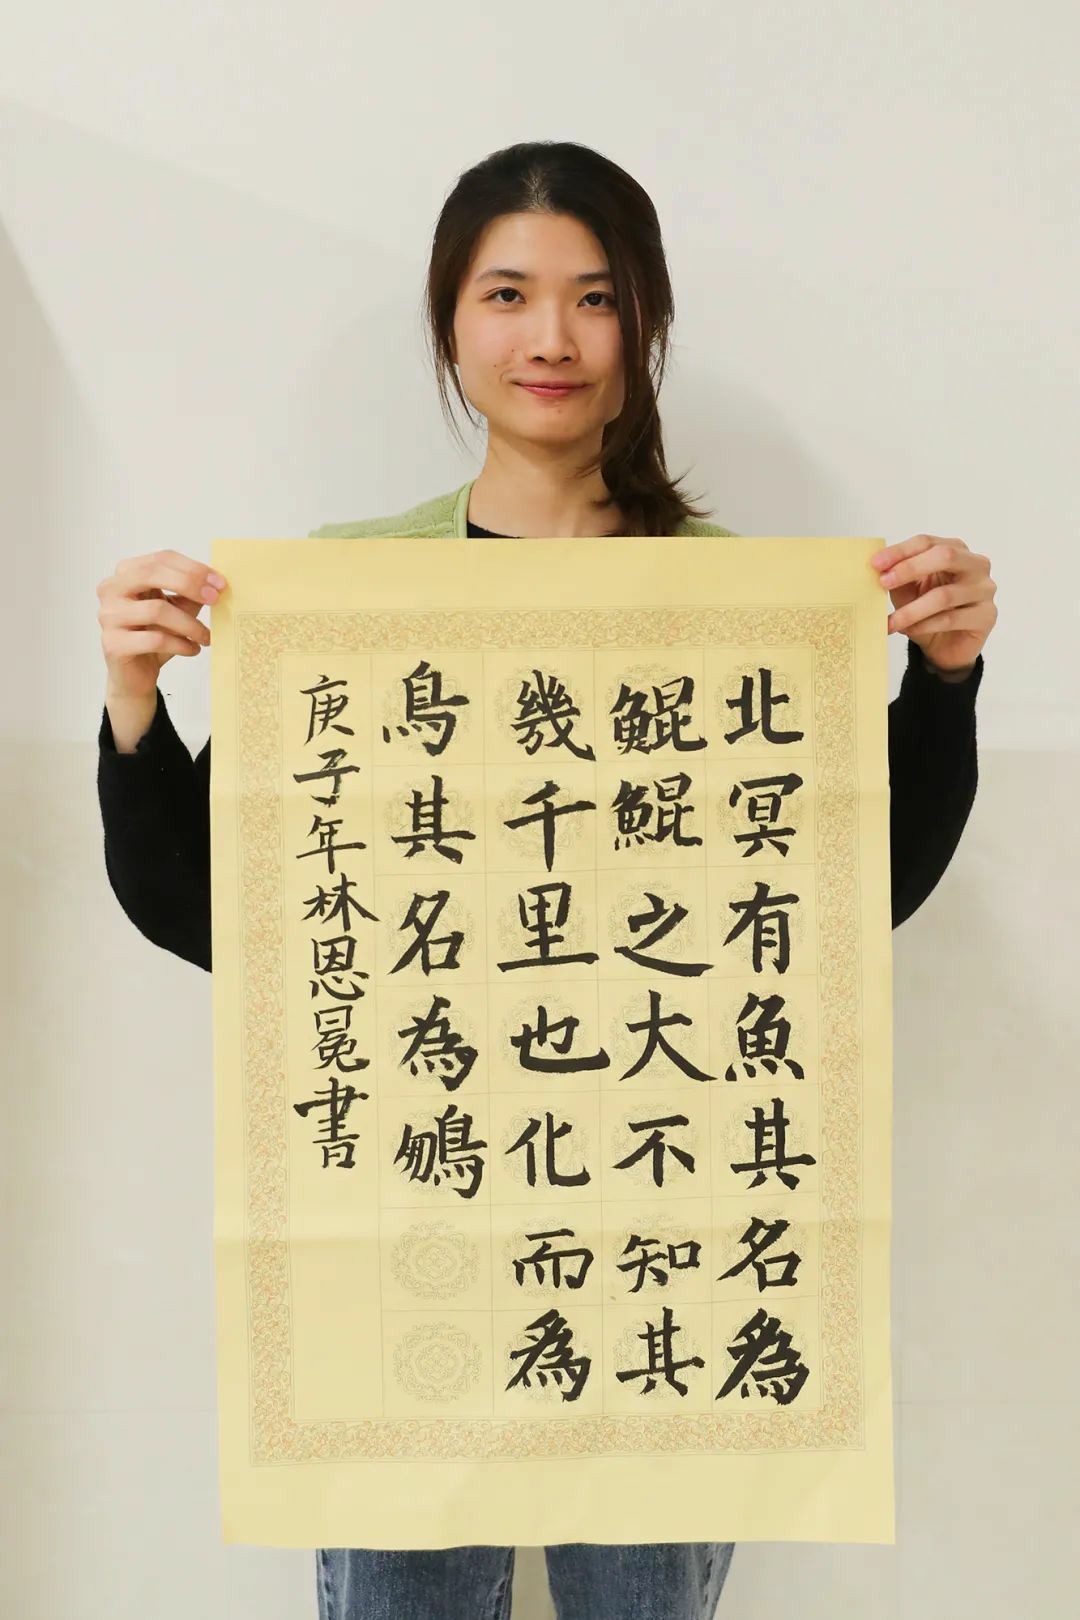 北冥有魚其名為
鯤鯤之大不知其
幾千里也化而為
鳥其名為鵬
庚子年林恩冕書